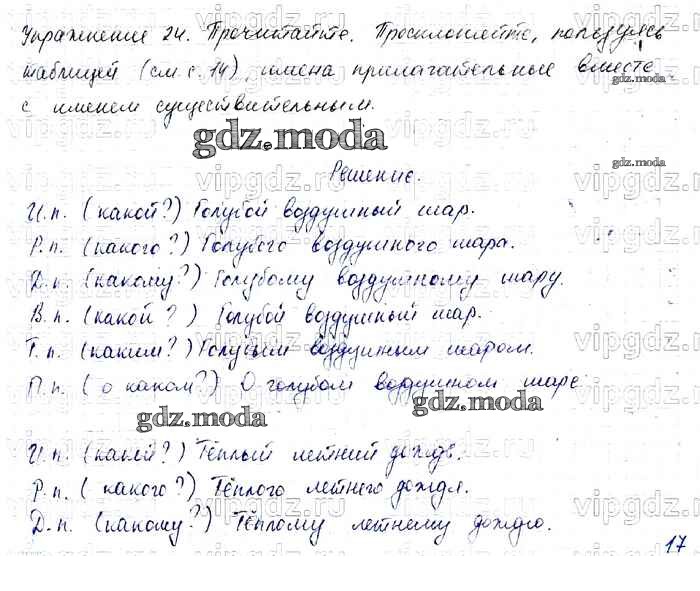 Упражнение 24. Прочитайте. Просклоняйте, пользуясь
таблицей (см с. 14), имена прилагательные вместе
с именем существительным.
gdz.moda
Решение.
И.п. (какой?) Голубой воздушный шар.
Р.п. (какого?) Голубого воздушного шара.
Д.п. (какому?) Голубому воздушному шару.
В.п. (какой?) Голубой воздушный шар.
Т.п. (каким?) Голубым воздушным шаром.
П.п. (о каком?) О голубом воздушном шаре
gdz.moda gdz.moda
И.п. (какой?) Тёплый летний дождь.
Р.п. (какого?) Тёплого летнего дождя.
Д.п. (какому?) Тёплому летнему дождю.
17